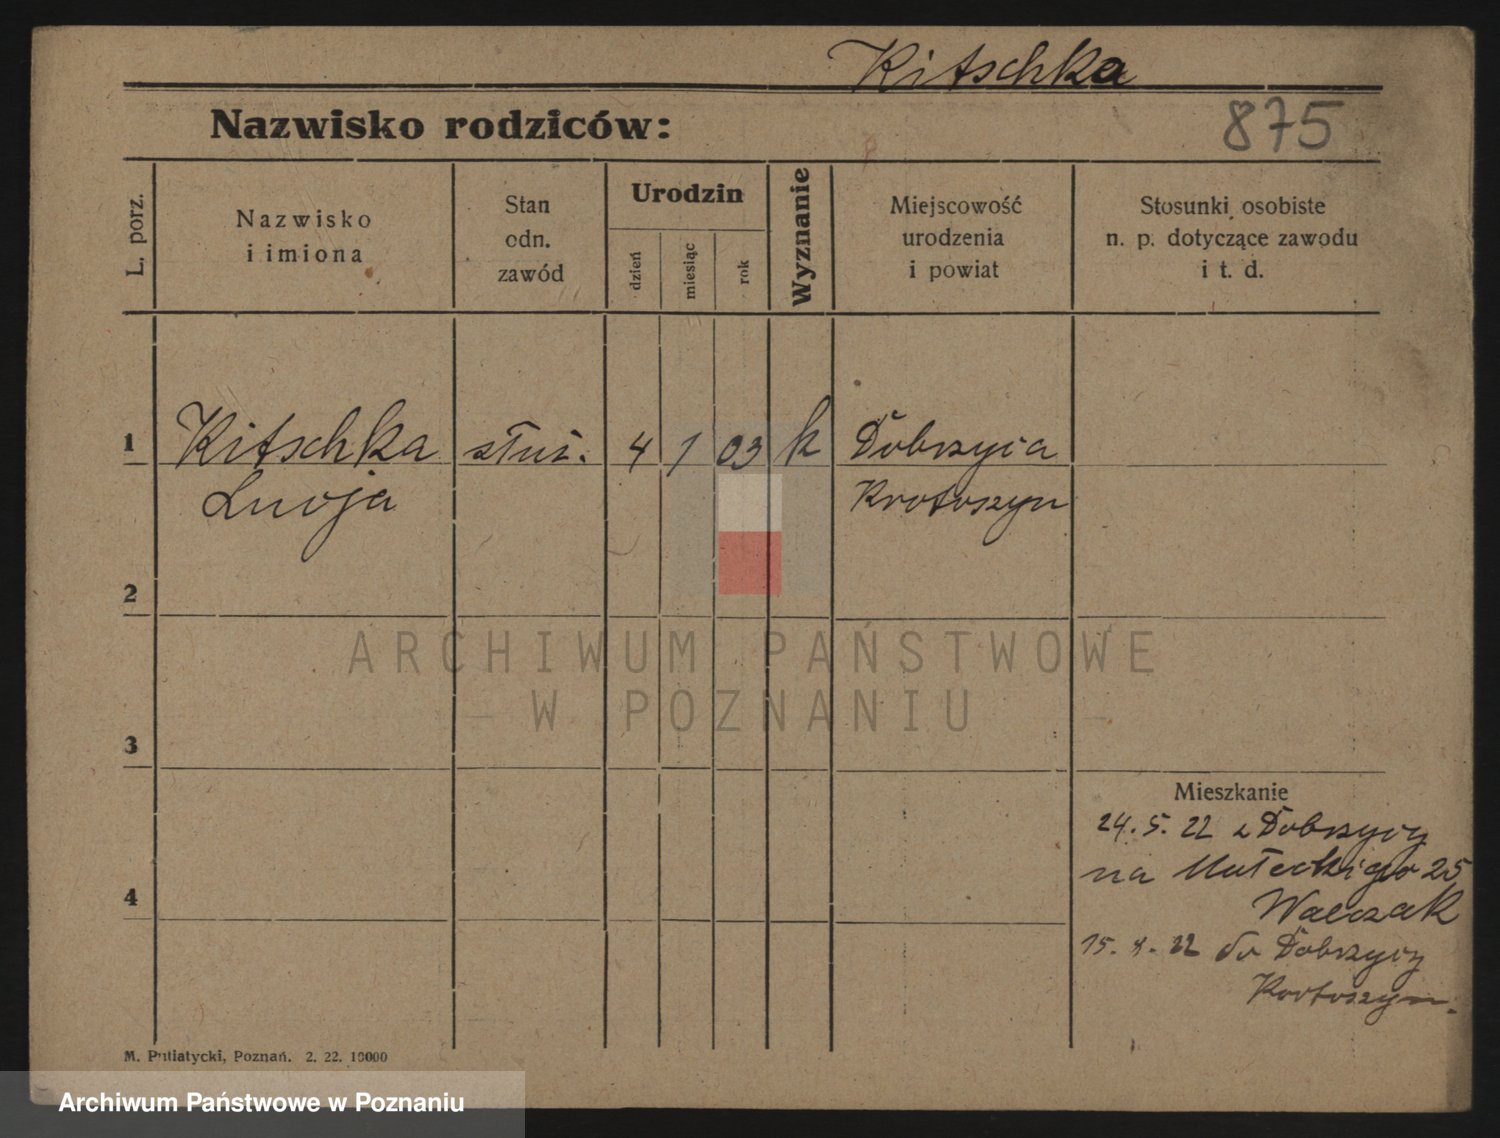 Kitschka
875
Nazwisko rodziców:
L. porz.
Nazwisko
i imiona
Stan
odn.
zawód
Urodzin
dzień
miesiąc
rok
Wyznanie
Miejscowość
urodzenia
i powiat
Stosunki osobiste
n. p. dotyczące zawodu
i t. d.
1
Kitschka
służ.
4
1
03
k
Dobrzyca
Krotoszyn
2
3
4
Mieszkanie
24. 5. 22 z Dobrzycy
na Małeckiego 25
Walczak
15. 8. 22 do Dobrzycy
Krotoszyn.
M. Putiatycki, Poznań. 2. 22. 10000
ARCHIWUM PAŃSTWOWE
W POZNANIU
Archiwum Państwowe w Poznaniu